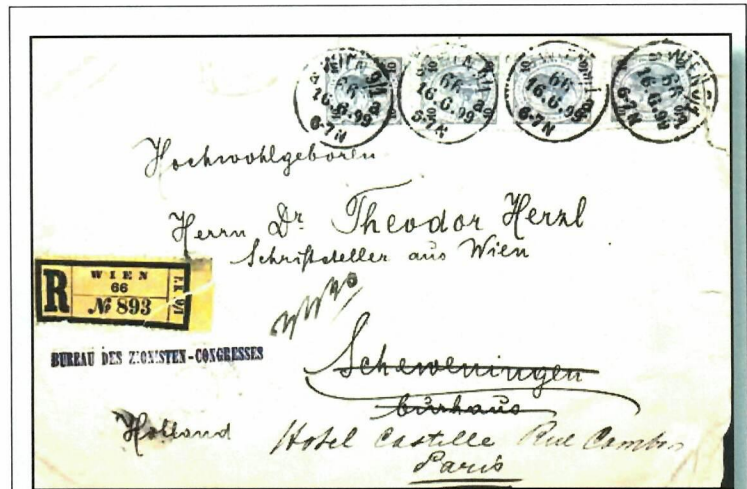 WIEN 9/1
66 a
16.6.99
6-7N
WIEN 9/1
66 a
16.6.99
6-7N
66
16.6.99
6-7N
WIEN 9/1
66
16.6.99
6-7N
Hochwohlgeboren
Herrn Dr Theodor Herzl
Schriftsteller aus Wien
R
WIEN
66
№ 893
BUREAU DES ZIONISTEN-CONGRESSES
Scheweningen
Curhaus
Holland
Hotel Castille Rue Cambon
Paris